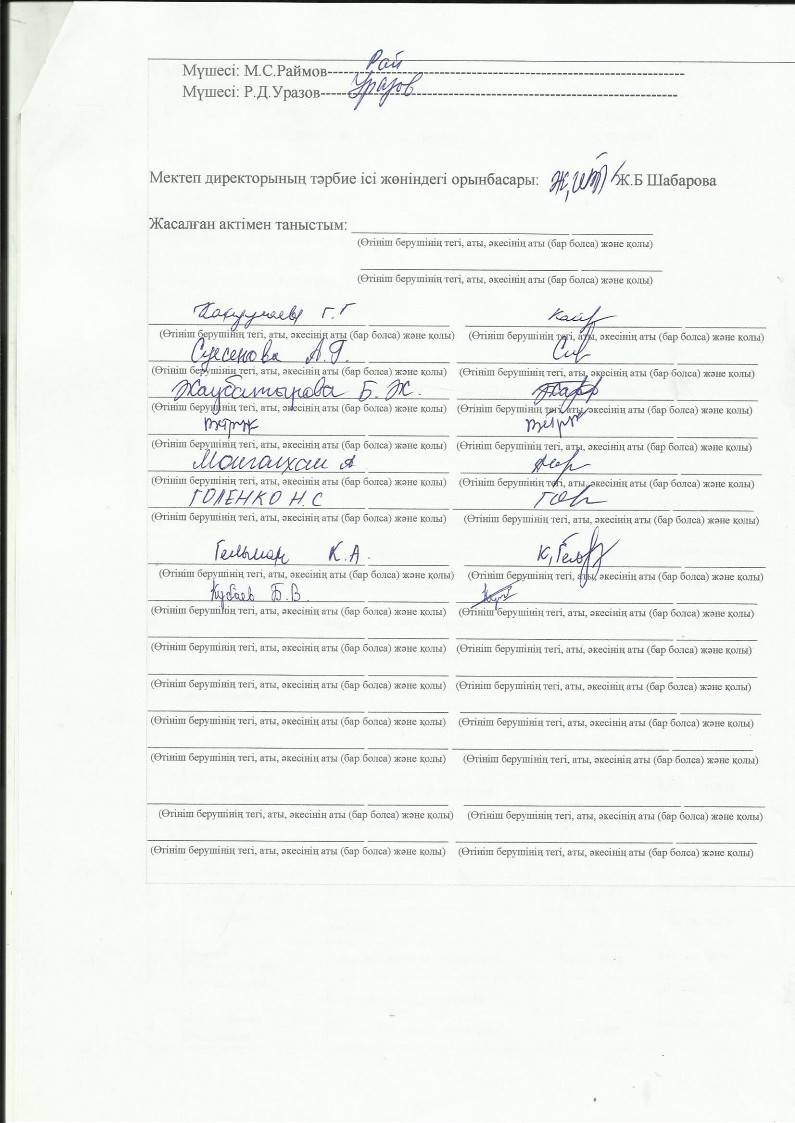 Рай
Мүшесі: М.С.Раймов--------------------------------------------------------------------
Мүшесі: Р.Д.Уразов--------------------------------------------------------------------
Уразов
Мектеп директорының тәрбие ісі жөніндегі орынбасары: Ж.Б Шабарова
Жасалған актімен таныстым: ______________________________
(Өтініш берушінің тегі, аты, әкесінің аты (бар болса) және қолы)
(Өтініш берушінің тегі, аты, әкесінің аты (бар болса) және қолы)
Г.Г
(Өтініш берушінің тегі, аты, әкесінің аты (бар болса) және қолы) (Өтініш берушінің тегі, аты, әкесінің аты (бар болса) және қолы)
Сүесенова А.Г.
(Өтініш берушінің тегі, аты, әкесінің аты (бар болса) және қолы) (Өтініш берушінің тегі, аты, әкесінің аты (бар болса) және қолы)
Жаубатырова Б. Ж.
(Өтініш берушінің тегі, аты, әкесінің аты (бар болса) және қолы) (Өтініш берушінің тегі, аты, әкесінің аты (бар болса) және қолы)
(Өтініш берушінің тегі, аты, әкесінің аты (бар болса) және қолы) (Өтініш берушінің тегі, аты, әкесінің аты (бар болса) және қолы)
А
(Өтініш берушінің тегі, аты, әкесінің аты (бар болса) және қолы) (Өтініш берушінің тегі, аты, әкесінің аты (бар болса) және қолы)
ГОЛЕНКО Н.С
(Өтініш берушінің тегі, аты, әкесінің аты (бар болса) және қолы) (Өтініш берушінің тегі, аты, әкесінің аты (бар болса) және қолы)
Гельман К.А.
(Өтініш берушінің тегі, аты, әкесінің аты (бар болса) және қолы) (Өтініш берушінің тегі, аты, әкесінің аты (бар болса) және қолы)
Кубаев Б.В.
(Өтініш берушінің тегі, аты, әкесінің аты (бар болса) және қолы) (Өтініш берушінің тегі, аты, әкесінің аты (бар болса) және қолы)
(Өтініш берушінің тегі, аты, әкесінің аты (бар болса) және қолы) (Өтініш берушінің тегі, аты, әкесінің аты (бар болса) және қолы)
(Өтініш берушінің тегі, аты, әкесінің аты (бар болса) және қолы) (Өтініш берушінің тегі, аты, әкесінің аты (бар болса) және қолы)
(Өтініш берушінің тегі, аты, әкесінің аты (бар болса) және қолы) (Өтініш берушінің тегі, аты, әкесінің аты (бар болса) және қолы)
(Өтініш берушінің тегі, аты, әкесінің аты (бар болса) және қолы) (Өтініш берушінің тегі, аты, әкесінің аты (бар болса) және қолы)
(Өтініш берушінің тегі, аты, әкесінің аты (бар болса) және қолы) (Өтініш берушінің тегі, аты, әкесінің аты (бар болса) және қолы)
(Өтініш берушінің тегі, аты, әкесінің аты (бар болса) және қолы) (Өтініш берушінің тегі, аты, әкесінің аты (бар болса) және қолы)